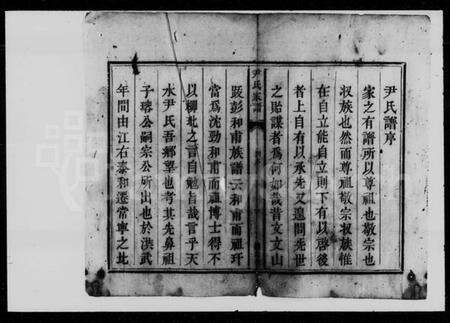 尹氏譜序
家之有譜所以尊祖也敬宗也
收族也然而尊祖敬宗收族惟
在自立能自立則下有以啓後
者上自有以承先又遑問先世
之貽謀者為何如哉昔文文山
尹氏家譜
跋彭和甫族譜云和甫而祖玕
當為沈勁和甫而祖博士得不
以柳玭之言自勉旨哉言乎天
水尹氏吾鄉望也考其先鼻祖
子璿公嗣宗公所出也於洪武
年間由江右泰和遷常寧之北